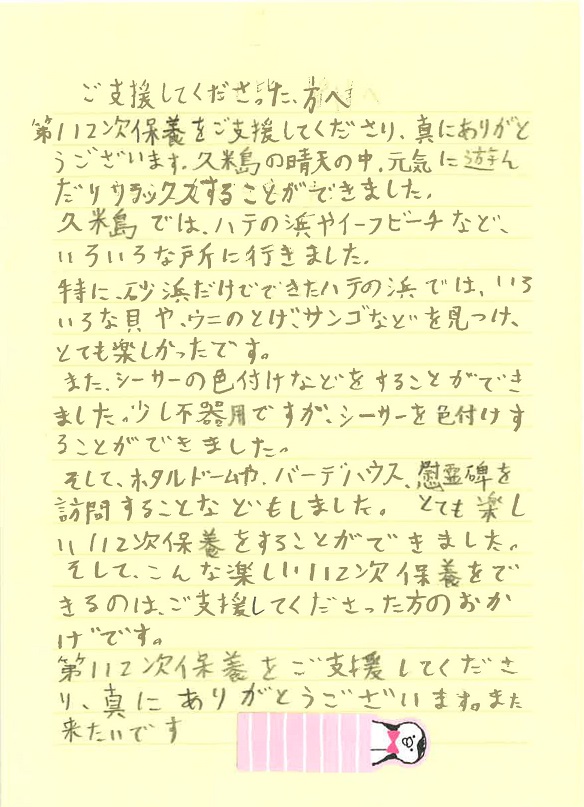 ご支援してくださった、方へ
第112次保養をご支援してくださり、真にありがと
うございます。久米島の晴天の中、元気に遊ん
だりリラックスすることができました。
久米島では、ハテの浜やイーフビーチなど、
いろいろな所に行きました。
特に、砂浜だけでできたハテの浜では、いろ
いろな貝や、ウニのとげ、サンゴなどを見つけ、
とても楽しかったです。
また、シーサーの色付けなどをすることができ
ました。少し不器用ですが、シーサーを色付けす
ることができました。
そして、ホタルドームや、バーデハウス、慰霊碑を
訪問することなどもしました。とても楽し
い112次保養をすることができました。
そして、こんな楽しい112次保養をで
きるのは、ご支援してくださった方のおか
げです。
第112次保養をご支援してくださ
り、真にありがとうございます。また
来たいです